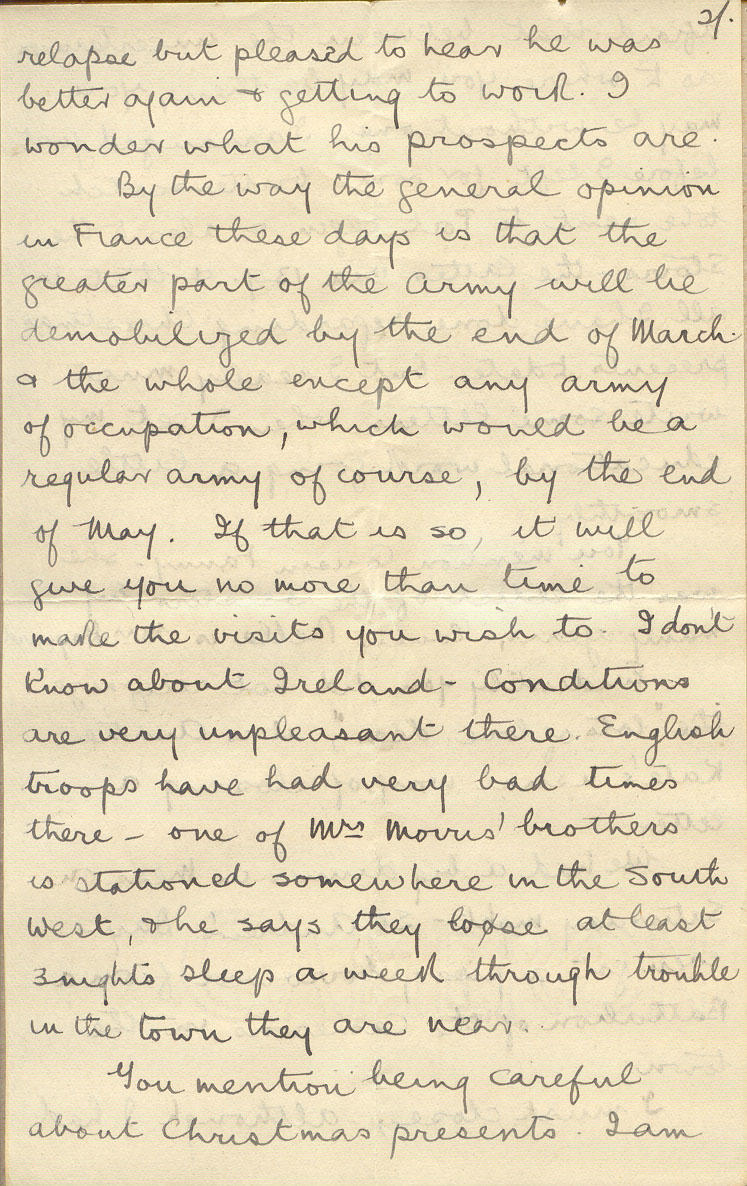 2/.
relapse but pleased to hear he was
better again & getting to work. I
wonder what his prospects are.
By the way the general opinion
in France these days is that the
greater part of the army will be
demobilized by the end of March.
& the whole except any army
of occupation, which would be a
regular army of course, by the end
of May. If that is so, it will
give you no more than time to
make the visits you wish to. I don't
know about Ireland - Conditions
are very unpleasant there. English
troops have had very bad times
there - one of Mrs Morris' brothers
is stationed somewhere in the South
West, & he says they loose at least
3 nights sleep a week through trouble
in the town they are near.
You mention being careful
about Christmas presents. I am